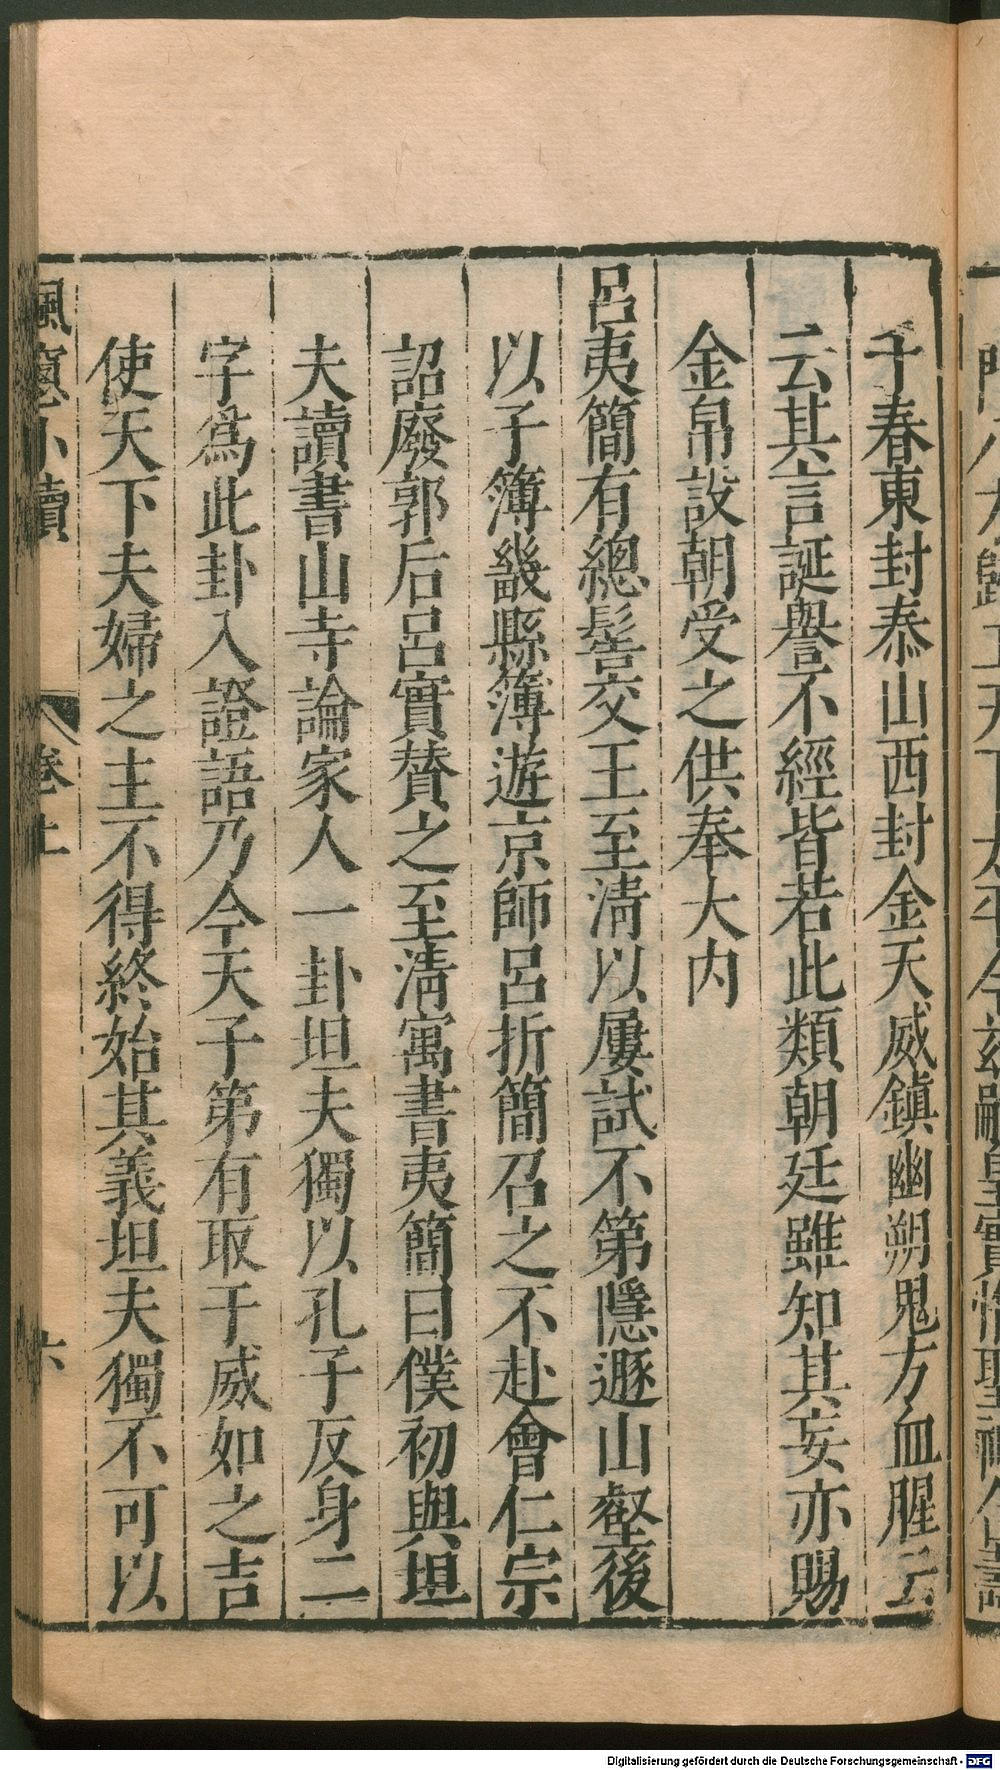 千春東封泰山西封金天威鎮幽朔鬼方血腥云
云其言誕譽不經皆若此類朝廷雖知其妄亦賜
金帛設朝受之供奉大内
呂夷簡有總髻交王至清以屢試不第隱遯山壑後
以子簿畿縣簿遊京師呂折簡召之不赴會仁宗
詔廢郭后呂實賛之至清寓書夷簡曰僕初與坦
夫讀書山寺論家人一卦坦夫獨以孔子反身二
字爲此卦入證語乃今天子第有取于威如之吉
使天下夫婦之主不得終始其義坦夫獨不可以
楓窻小牘
卷上
六
Digitalisierung gefördert durch die Deutsche Forschungsgemeinschaft - DFG